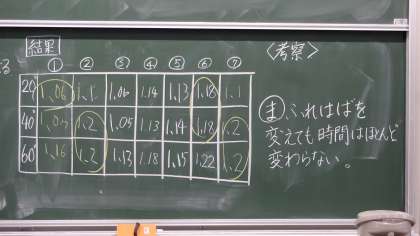 結果
① ② ③ ④ ⑤ ⑥ ⑦
20° 1.06 1.1 1.06 1.14 1.13 1.18 1.1
40° 1.2 1.05 1.13 1.14 1.18 1.2
60° 1.16 1.2 1.13 1.18 1.15 1.22 1.2
〈考察〉
ま ふれはばを
変えても時間はほとんど
変わらない。